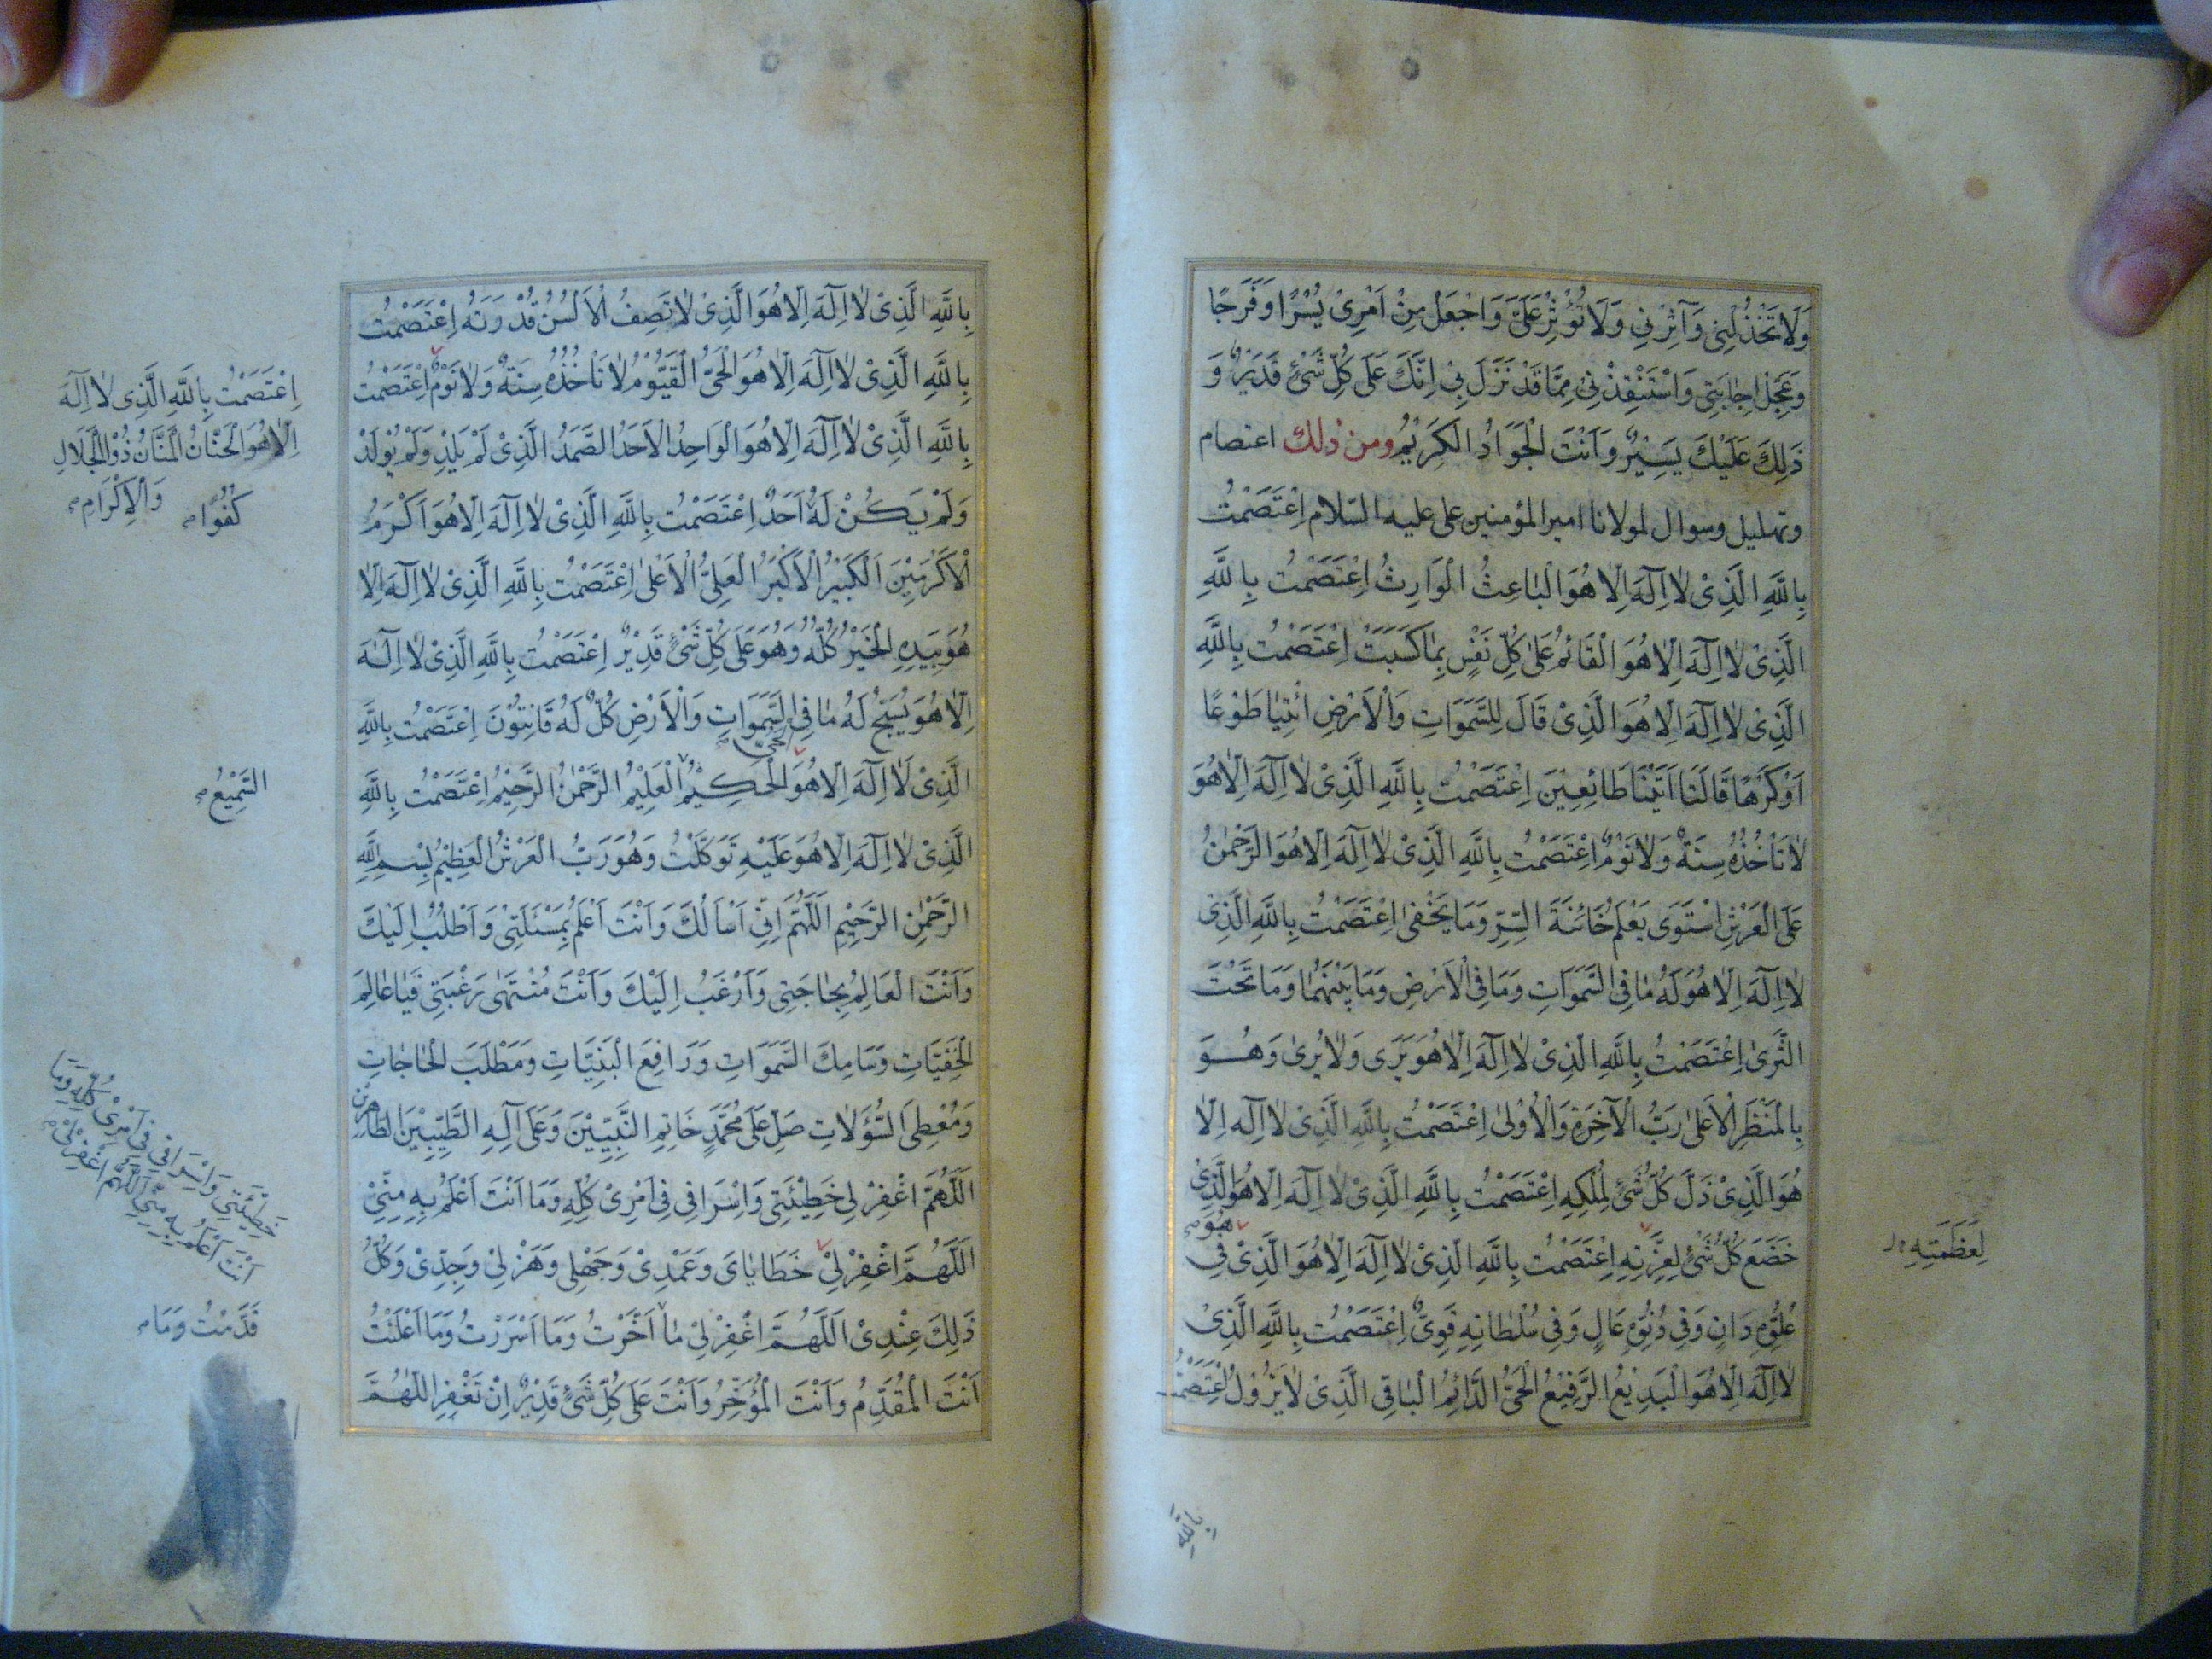 وَلَا تَخْذُلْنِي وَآثِرْنِي وَلَا تُؤْثِرْ عَلَيَّ وَاجْعَلْ مِنْ اَمْرِيْ يُسْرًا وَفَرَجًا
وَعَجِّلْ اِجَابَتِي وَاسْتَنْقِذْنِي مِمَّا قَدْ نَزَلَ بِي اِنَّكَ عَلَى كُلِّ شَيْءٍ قَدِيرٌ وَ
ذَلِكَ عَلَيْكَ يَسِيْرٌ وَاَنْتَ الْجَوَادُ الْكَرِيْمُ ومن ذلك اعتصام
وتهليل وسوال لمولانا امير المؤمنين على عليه السلام اِعْتَصَمْتُ
بِاللَّهِ الَّذِيْ لَا اِلَهَ اِلَّا هُوَ الْبَاعِثُ الْوَارِثُ اِعْتَصَمْتُ بِاللَّهِ
الَّذِيْ لَا اِلَهَ اِلَّا هُوَ الْقَائِمُ عَلَى كُلِّ نَفْسٍ بِمَا كَسَبَتْ اِعْتَصَمْتُ بِاللَّهِ
الَّذِيْ لَا اِلَهَ اِلَّا هُوَ الَّذِيْ قَالَ لِلسَّمَوَاتِ وَالْاَرْضِ ائْتِيَا طَوْعًا
اَوْ كَرْهًا قَالَتَا اَتَيْنَا طَائِعِيْنَ اِعْتَصَمْتُ بِاللَّهِ الَّذِيْ لَا اِلَهَ اِلَّا هُوَ
لَا تَاْخُذُهُ سِنَةٌ وَلَا نَوْمٌ اِعْتَصَمْتُ بِاللَّهِ الَّذِيْ لَا اِلَهَ اِلَّا هُوَ الرَّحْمٰنُ
عَلَى الْعَرْشِ اسْتَوَى يَعْلَمُ خَائِنَةَ السِّرِّ وَمَا يَخْفَى اِعْتَصَمْتُ بِاللَّهِ الَّذِيْ
لَا اِلَهَ اِلَّا هُوَ لَهُ مَا فِي السَّمَوَاتِ وَمَا فِي الْاَرْضِ وَمَا بَيْنَهُمَا وَمَا تَحْتَ
الثَّرَى اِعْتَصَمْتُ بِاللَّهِ الَّذِيْ لَا اِلَهَ اِلَّا هُوَ يَرَى وَلَا يُرَى وَهُوَ
بِالْمَنْظَرِ الْاَعْلَى رَبُّ الْآخِرَةِ وَالْاُوْلَى اِعْتَصَمْتُ بِاللَّهِ الَّذِيْ لَا اِلَهَ اِلَّا
هُوَ الَّذِيْ ذَلَّ كُلُّ شَيْءٍ لِمُلْكِهِ اِعْتَصَمْتُ بِاللَّهِ الَّذِيْ لَا اِلَهَ اِلَّا هُوَ الَّذِيْ
خَضَعَ كُلُّ شَيْءٍ لِعِزَّتِهِ اِعْتَصَمْتُ بِاللَّهِ الَّذِيْ لَا اِلَهَ اِلَّا هُوَ الَّذِيْ فِي
لِعَظَمَتِهِ
عُلُوِّهِ دَانٍ وَفِي دُنُوِّهِ عَالٍ وَفِي سُلْطَانِهِ قَوِيٌّ اِعْتَصَمْتُ بِاللَّهِ الَّذِيْ
لَا اِلَهَ اِلَّا هُوَ الْبَدِيْعُ الرَّفِيْعُ الْحَيُّ الدَّائِمُ الْبَاقِي الَّذِيْ لَا يَزُوْلُ اِعْتَصَمْتُ
بِاللَّهِ
بِاللَّهِ الَّذِيْ لَا اِلَهَ اِلَّا هُوَ الَّذِيْ لَا تَصِفُ الْاَلْسُنُ قُدْرَتَهُ اِعْتَصَمْتُ
بِاللَّهِ الَّذِيْ لَا اِلَهَ اِلَّا هُوَ الْحَيُّ الْقَيُّوْمُ لَا تَاْخُذُهُ سِنَةٌ وَلَا نَوْمٌ اِعْتَصَمْتُ
اِعْتَصَمْتُ بِاللَّهِ الَّذِي لَا اِلَهَ
اِلَّا هُوَ الْحَنَّانُ الْمَنَّانُ ذُو الْجَلَالِ
وَالْاِكْرَامِ
بِاللَّهِ الَّذِيْ لَا اِلَهَ اِلَّا هُوَ الْوَاحِدُ الْاَحَدُ الصَّمَدُ الَّذِيْ لَمْ يَلِدْ وَلَمْ يُوْلَدْ
وَلَمْ يَكُنْ لَهُ اَحَدٌ اِعْتَصَمْتُ بِاللَّهِ الَّذِيْ لَا اِلَهَ اِلَّا هُوَ اَكْرَمُ
كُفُوًا
الْاَكْرَمِيْنَ الْكَبِيْرُ الْاَكْبَرُ الْعَلِيُّ الْاَعْلَى اِعْتَصَمْتُ بِاللَّهِ الَّذِيْ لَا اِلَهَ اِلَّا
هُوَ بِيَدِهِ الْخَيْرُ كُلُّهُ وَهُوَ عَلَى كُلِّ شَيْءٍ قَدِيْرٌ اِعْتَصَمْتُ بِاللَّهِ الَّذِيْ لَا اِلَهَ
اِلَّا هُوَ يُسَبِّحُ لَهُ مَا فِي السَّمَوَاتِ وَالْاَرْضِ كُلٌّ لَهُ قَانِتُوْنَ اِعْتَصَمْتُ بِاللَّهِ
الْحَيُّ
الَّذِيْ لَا اِلَهَ اِلَّا هُوَ الْحَكِيْمُ الْعَلِيْمُ الرَّحْمٰنُ الرَّحِيْمُ اِعْتَصَمْتُ بِاللَّهِ
السَّمِيْعُ
الَّذِيْ لَا اِلَهَ اِلَّا هُوَ عَلَيْهِ تَوَكَّلْتُ وَهُوَ رَبُّ الْعَرْشِ الْعَظِيْمِ بِسْمِ اللَّهِ
الرَّحْمٰنِ الرَّحِيْمِ اَللَّهُمَّ اِنِّي اَسْاَلُكَ وَاَنْتَ اَعْلَمُ بِمَسْئَلَتِيْ وَاَطْلُبُ اِلَيْكَ
وَاَنْتَ الْعَالِمُ بِحَاجَتِي وَاَرْغَبُ اِلَيْكَ وَاَنْتَ مُنْتَهَى رَغْبَتِي فَيَا عَالِمَ
الْخَفِيَّاتِ وَسَامِكَ السَّمَوَاتِ وَرَافِعَ الْبَنِيَّاتِ وَمَطْلَبَ الْحَاجَاتِ
وَمُعْطِيَ السُّؤُلَاتِ صَلِّ عَلَى مُحَمَّدٍ خَاتِمِ النَّبِيِّيْنَ وَعَلَى آلِهِ الطَّيِّبِيْنَ الطَّاهِرِيْنَ
اَللَّهُمَّ اغْفِرْ لِي خَطِيْئَتِي وَاِسْرَافِي فِي اَمْرِيْ كُلِّهِ وَمَا اَنْتَ اَعْلَمُ بِهِ مِنِّيْ
خَطِيْئَتِي وَاِسْرَافِي فِي اَمْرِيْ كُلِّهِ وَمَا
اَنْتَ اَعْلَمُ بِهِ مِنِّي اَللَّهُمَّ اغْفِرْ لِيْ
اَللَّهُمَّ اغْفِرْ لِيْ خَطَايَايَ وَعَمْدِيْ وَجَهْلِي وَهَزْلِيْ وَجِدِّيْ وَكُلُّ
ذَلِكَ عِنْدِيْ اَللَّهُمَّ اغْفِرْ لِيْ مَا اَخَّرْتُ وَمَا اَسْرَرْتُ وَمَا اَعْلَنْتُ
قَدَّمْتُ وَمَا
اَنْتَ الْمُقَدِّمُ وَاَنْتَ الْمُؤَخِّرُ وَاَنْتَ عَلَى كُلِّ شَيْءٍ قَدِيْرٌ اِنْ تَغْفِرِ اللَّهُمَّ